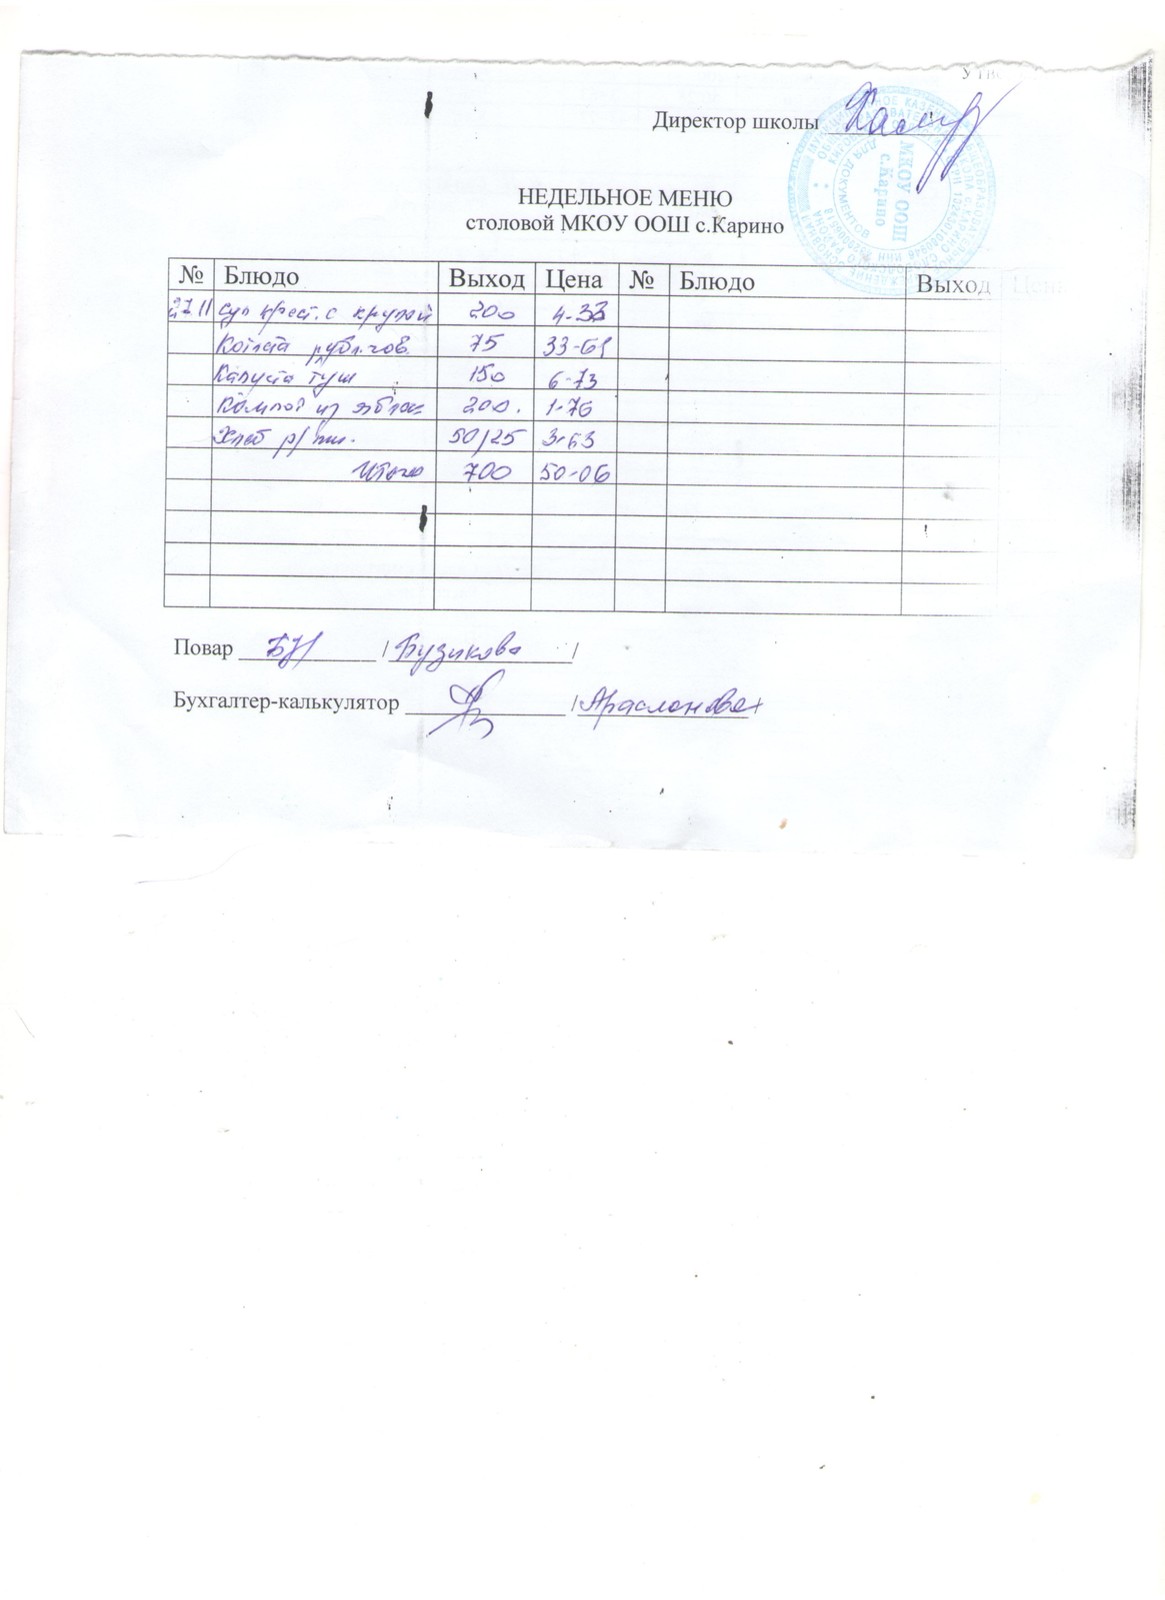 Директор школы
МКОУ ООШ
с.Карино
НЕДЕЛЬНОЕ МЕНЮ
столовой МКОУ ООШ с.Карино
№ Блюдо Выход Цена № Блюдо Выход Цена
27.11 Суп крест. с крупой 200 4-33
Котлета рубл. 75 33-61
Капуста туш 150 6-73
Компот из яблок 200. 1-76
Хлеб р/пш. 50/25 3-63
Итого 700 50-06
Повар / Бузикова /
Бухгалтер-калькулятор / Арасланова